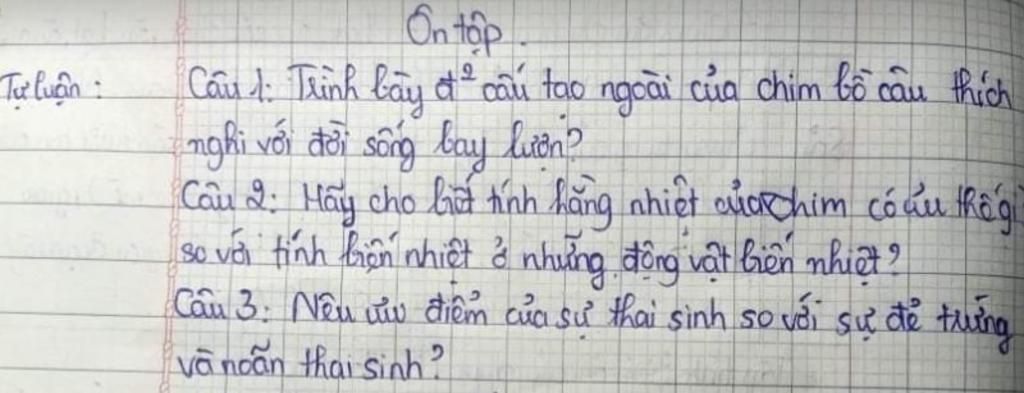 Ôn tập.
Tự luận: Câu 1: Trình bày đ² cấu tạo ngoài của chim bồ câu thích
nghi với đời sống bay lượn?
Câu 2: Hãy cho biết tính hằng nhiệt của chim có ưu thế gì
so với tính biến nhiệt ở những động vật biến nhiệt?
Câu 3: Nêu ưu điểm của sự thai sinh so với sự đẻ trứng
và noãn thai sinh?